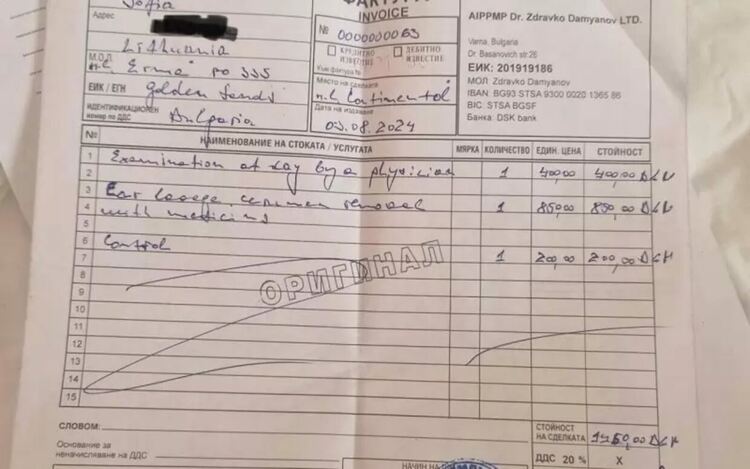 Sofia
Адрес
Lithuania
М.О.Л.
п.к. Erma по 555
ЕИК / ЕГН
Golden Sands
ИДЕНТИФИКАЦИОНЕН
номер по ДДС
Bulgaria
INVOICE
№ 0000000063
КРЕДИТНО ИЗВЕСТИЕ
ДЕБИТНО ИЗВЕСТИЕ
Към фактура №
Място на сделката
Дата на издаване
03.08.2024
AIPPMP Dr. Zdravko Damyanov LTD.
Varna, Bulgaria
Dr. Basanovich str.26
ЕИК: 201919186
МОЛ: Zdravko Damyanov
IBAN: BG93 STSA 9300 0020 1365 86
BIC: STSA BGSF
Банка: DSK bank
№ НАИМЕНОВАНИЕ НА СТОКАТА / УСЛУГАТА МЯРКА КОЛИЧЕСТВО ЕДИН. ЦЕНА СТОЙНОСТ
1 Examination at day by a physician
2 1 400,00 400,00
3 Ear lavage, cerumen removal
4 with medicins 1 850,00 850,00
5
6 Control
7 1 200,00 200,00
8
ОРИГИНАЛ
9
10
11
12
13
14
15
СЛОВОМ:
СТОЙНОСТ НА СДЕЛКАТА 1450,00
Основание за
неначисляване на ДДС
ДДС 20 % X
НАЧИН НА